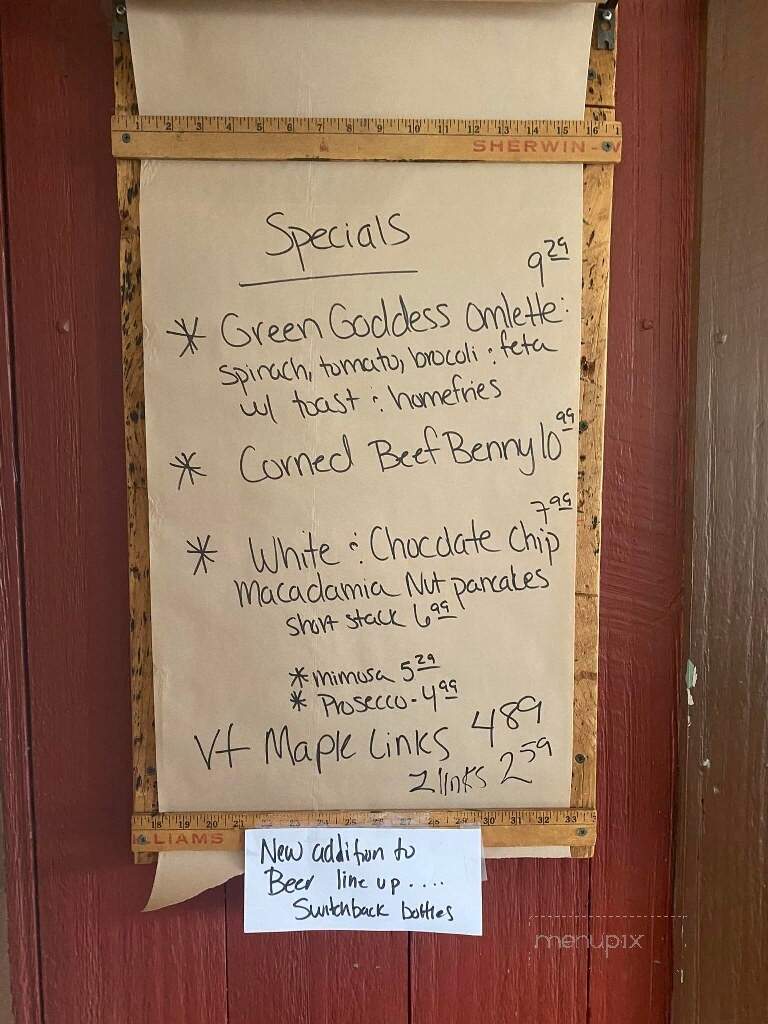 1 2 3 4 5 6 7 8 9 10 11 12 13 14 15 16 1
SHERWIN-W
Specials
9 29
* Green Goddess omlette:
spinach, tomato, brocoli : feta
w/ toast : homefries
* Corned Beef Benny 10 99
7 99
* White : Chocolate chip
Macadamia Nut pancakes
short stack 6 99
* mimosa 5 29
* Prosecco - 4 99
Vt Maple Links 4 89
2 links 2 59
18 19 20 21 22 23 24 25 26 27 28 29 30 31 32 33
LLIAMS
New addition to
Beer line up ....
Switchback bottles
menupix